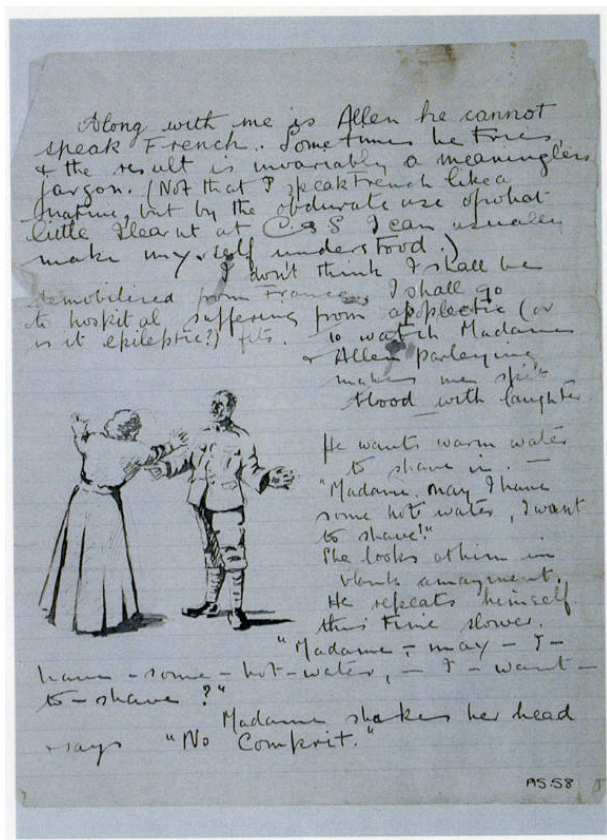 Along with me is Allen he cannot
speak French. Sometimes he tries,
& the result is invariably a meaningless
jargon. (Not that I speak French like a
native, but by the obdurate use of what
little I learnt at C.&S I can usually
make myself understood.)
I don't think I shall be
demobilized from France, I shall go
to hospital suffering from apoplectic (or
is it epileptic?) fits. To watch Madame
& Allen parleying
makes me spit
blood with laughter
He wants warm water
to shave in. —
"Madame, may I have
some hot water, I want
to shave!"
She looks at him in
blank amazment.
He repeats himself
this time slower.
"Madame – may – I –
have – some – hot – water, – I – want –
to – shave?"
Madame shakes her head
& says "No Comprit."
AS.58